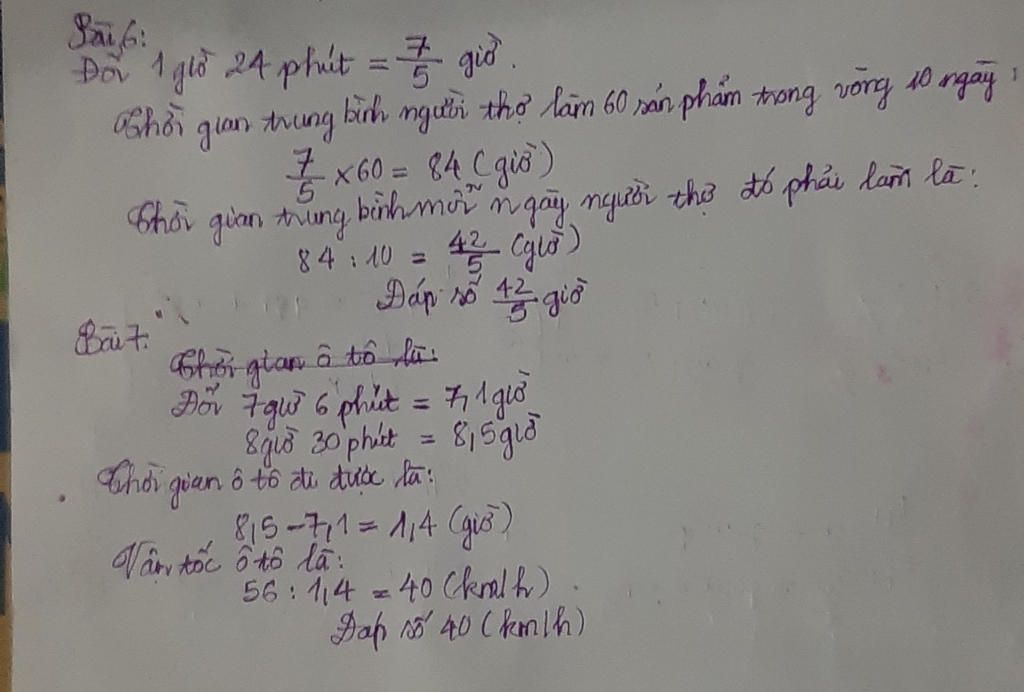 Bài 6:
Đổi 1 giờ 24 phút = 7/5 giờ.
Thời gian trung bình người thợ làm 60 sản phẩm trong vòng 10 ngày:
7/5 x 60 = 84 (giờ)
Thời gian trung bình mỗi ngày người thợ đó phải làm là:
84 : 10 = 42/5 (giờ)
Đáp số 42/5 giờ
Bài 7:
Thời gian ô tô là:
Đổi 7 giờ 6 phút = 7,1 giờ
8 giờ 30 phút = 8,5 giờ
Thời gian ô tô đi được là:
8,5 - 7,1 = 1,4 (giờ)
Vận tốc ô tô là:
56 : 1,4 = 40 (km/h)
Đáp số 40 (km/h)